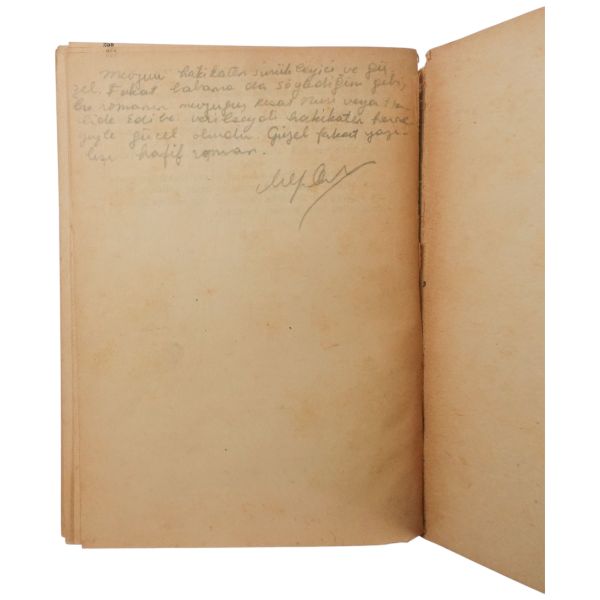 Mevzuu hakikaten sürükleyici ve gü-
zel. Fakat babama da söylediğim gibi,
bu romanın mevzuu Reşat Nuri veya Ha-
lide Edibe verilseydi hakikaten herşe-
yiyle güzel olurdu. Güzel fakat yazı-
lışı hafif roman.